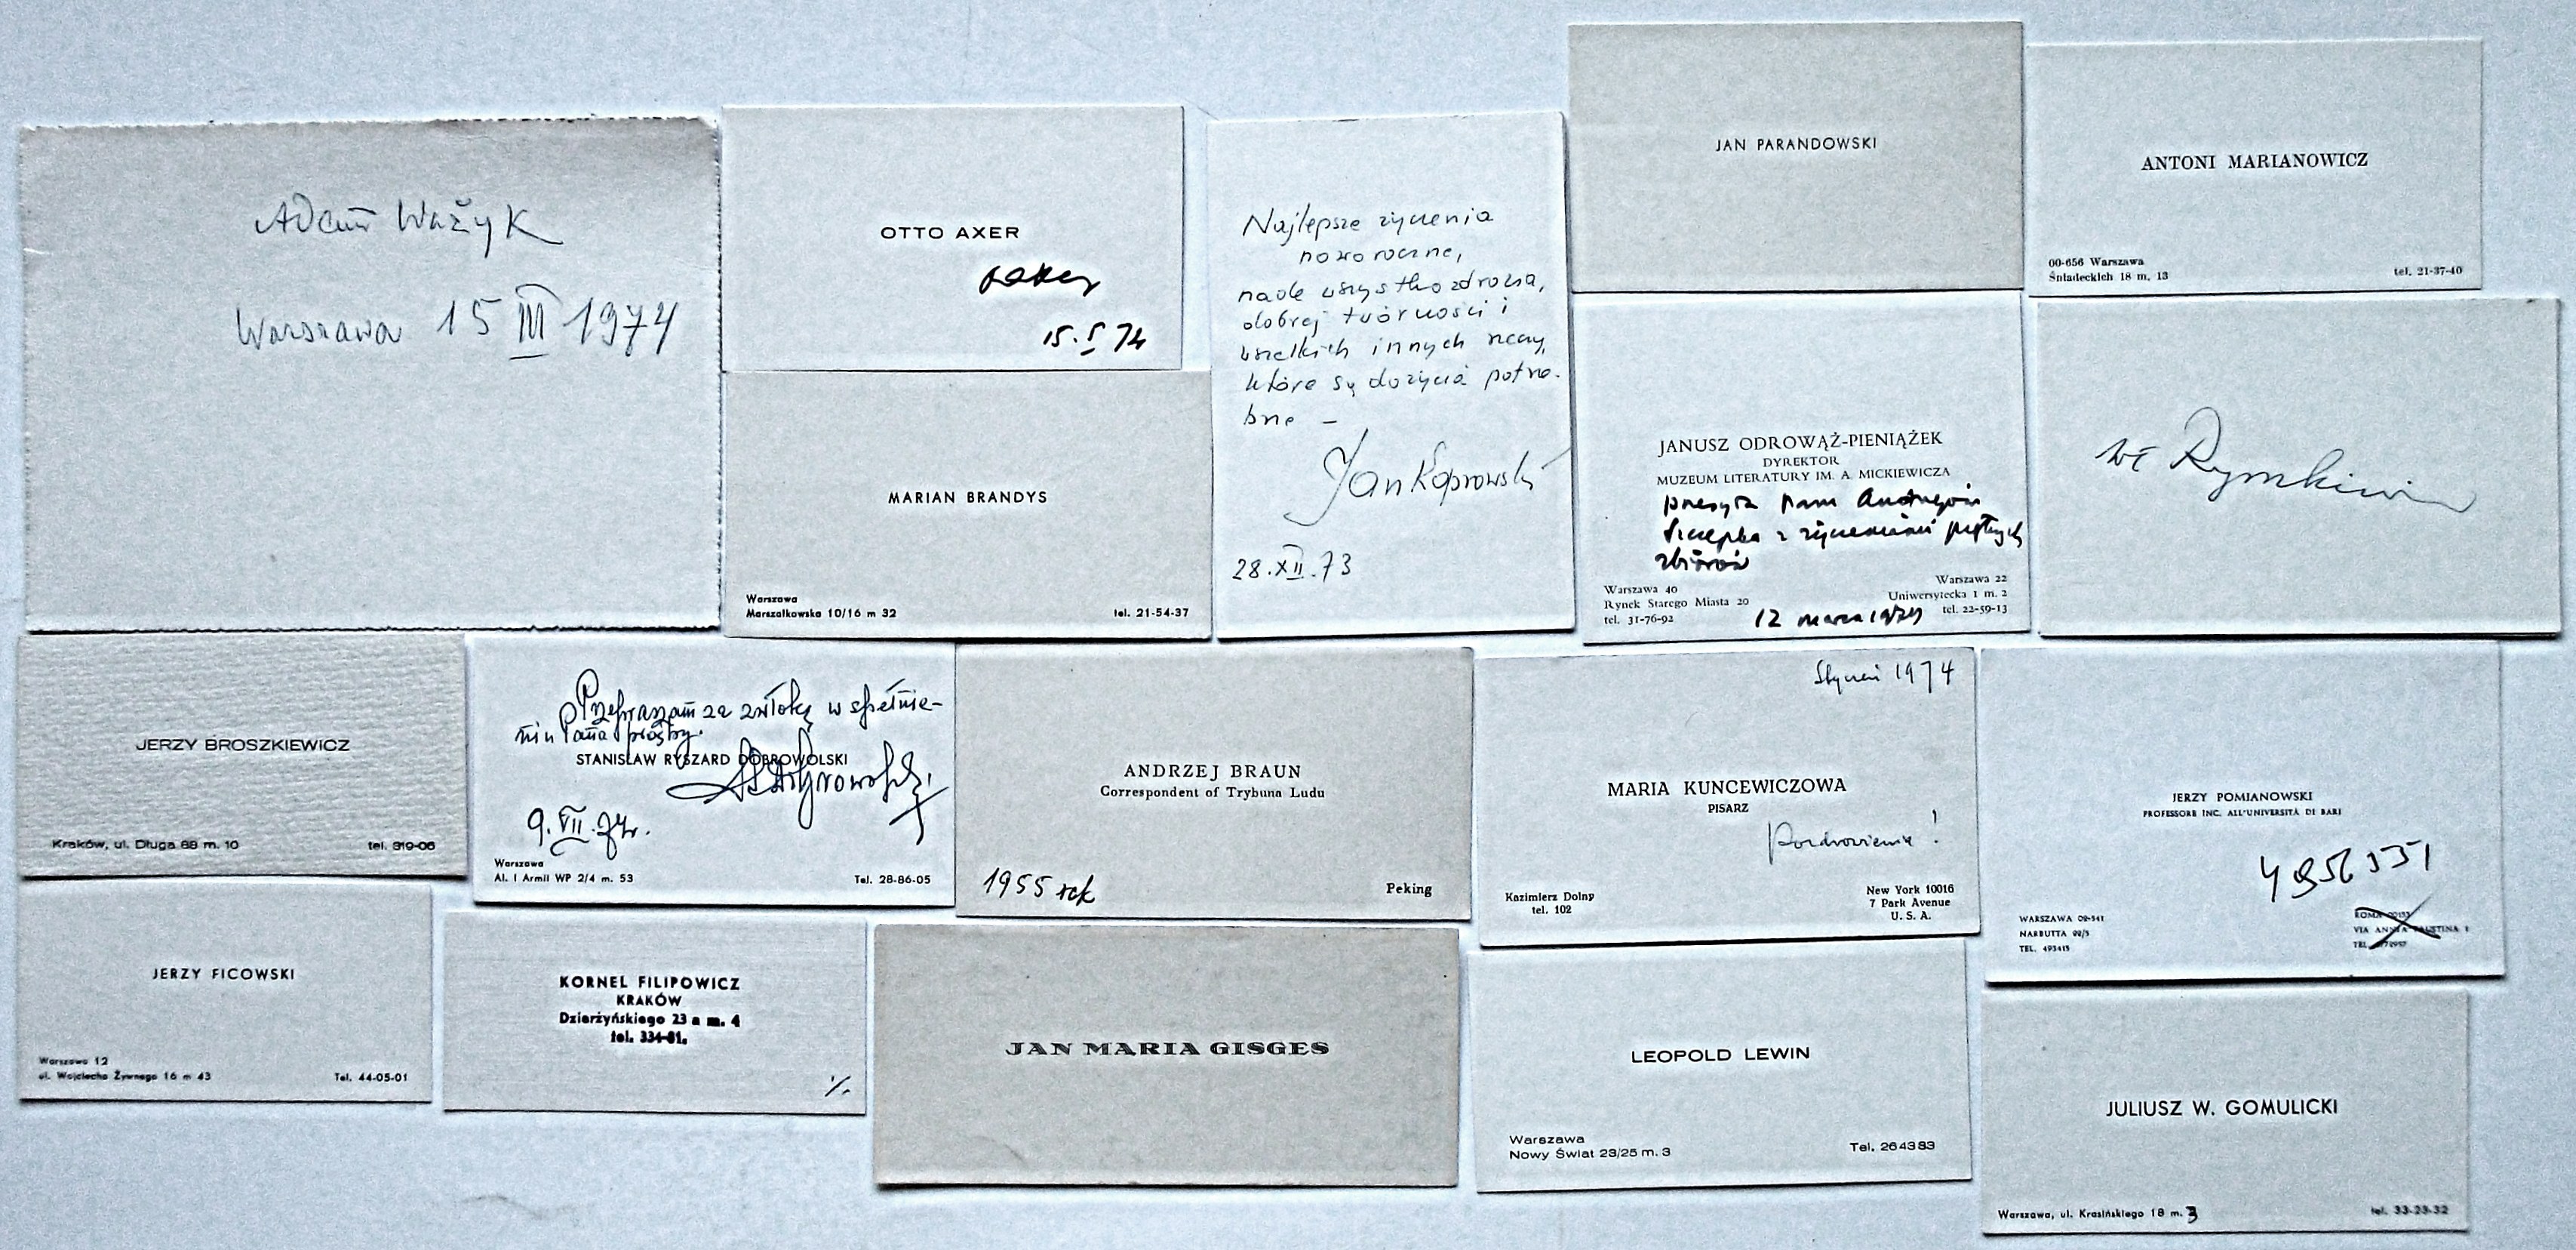 Adam Ważyk
Warszawa 15 III 1974
OTTO AXER
15.I 74
MARIAN BRANDYS
Warszawa
Marszałkowska 10/16 m 32
tel. 21-54-37
Najlepsze życzenia
noworoczne,
nade wszystko zdrowia,
dobrej twórczości i
wszelkich innych rzeczy,
które są do życia potrze-
bne –
Jan Koprowski
28.XII.73
JAN PARANDOWSKI
ANTONI MARIANOWICZ
00-656 Warszawa
Śniadeckich 18 m. 13
tel. 21-37-40
JANUSZ ODROWĄŻ-PIENIĄŻEK
DYREKTOR
MUZEUM LITERATURY IM. A. MICKIEWICZA
przesyła Panu Andrzejowi
z życzeniami pięknych
zbiorów
Warszawa 40
Rynek Starego Miasta 20
tel. 31-76-92
Warszawa 22
Uniwersytecka 1 m. 2
tel. 22-59-13
12 marca 1974
Wł Rymkiewicz
JERZY BROSZKIEWICZ
Kraków, ul. Długa 88 m. 10
tel. 319-06
Przepraszam za zwłokę w spełnie-
niu Pana prośby.
STANISŁAW RYSZARD DOBROWOLSKI
9.VII.74r.
Warszawa
Al. I Armii WP 2/4 m. 53
Tel. 28-86-05
ANDRZEJ BRAUN
Correspondent of Trybuna Ludu
1955 rok
Peking
Styczeń 1974
MARIA KUNCEWICZOWA
PISARZ
Pozdrowienia!
Kazimierz Dolny
tel. 102
New York 10016
7 Park Avenue
U. S. A.
JERZY POMIANOWSKI
PROFESSORE INC. ALL'UNIVERSITÀ DI BARI
WARSZAWA 02-541
NARBUTTA 22/3
TEL. 493415
ROMA 00153
VIA ANNIA FAUSTINA
TEL.
JERZY FICOWSKI
Warszawa 12
ul. Wojciecha Żywnego 16 m 43
Tel. 44-05-01
KORNEL FILIPOWICZ
KRAKÓW
Dzierżyńskiego 23 a m. 4
tel. 334-81.
JAN MARIA GISGES
LEOPOLD LEWIN
Warszawa
Nowy Świat 23/25 m. 3
Tel. 264383
JULIUSZ W. GOMULICKI
Warszawa, ul. Krasińskiego 18 m. 3
tel. 33-23-32